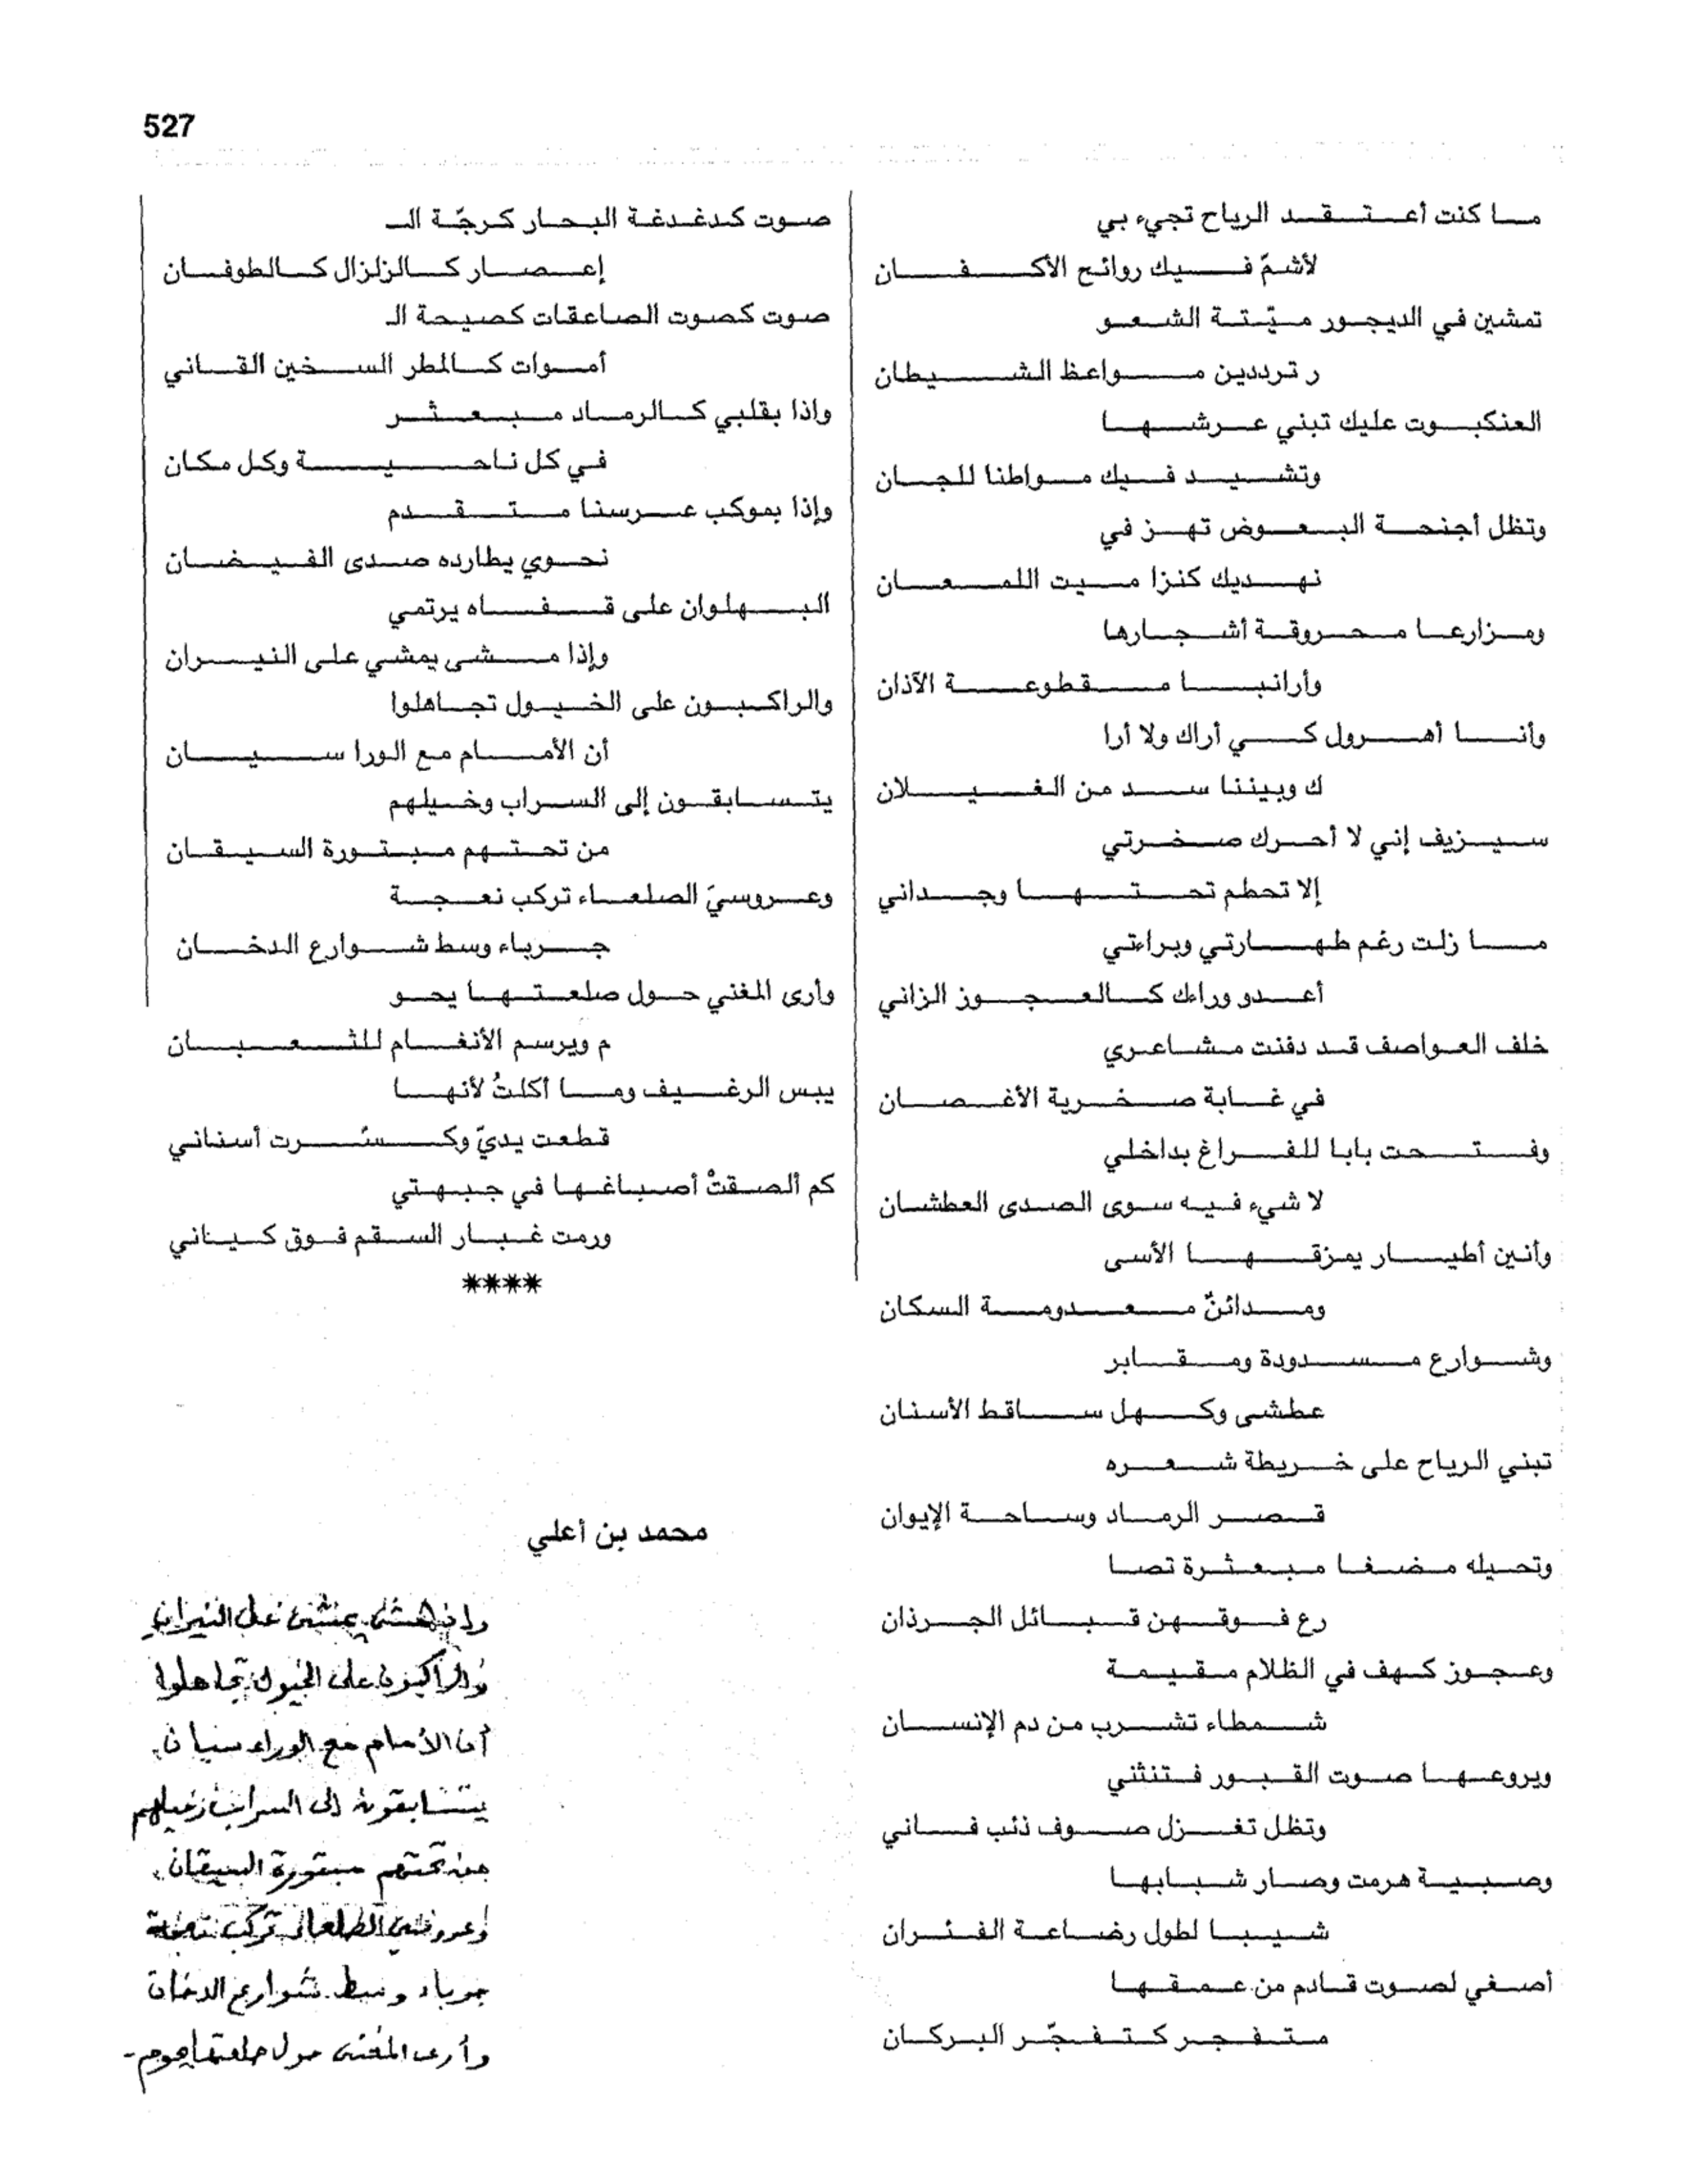 527
ما كنت أعتقد الرياح تجيء بي
لأشمّ فيك روائح الأكفان
تمشين في الديجور ميّتة الشعو
ر ترددين مواعظ الشيطان
العنكبوت عليك تبني عرشها
وتشيد فيك مواطنا للجان
وتظل أجنحة البعوض تهز في
نهديك كنزا ميت اللمعان
ومزارعا محروقة أشجارها
وأرانبا مقطوعة الآذان
وأنا أهرول كي أراك ولا أرا
ك وبيننا سد من الغيلان
سيزيف إني لا أحرك صخرتي
إلا تحطم تحتها وجداني
ما زلت رغم طهارتي وبراءتي
أعدو وراءك كالعجوز الزاني
خلف العواصف قد دفنت مشاعري
في غابة صخرية الأغصان
وفتحت بابا للفراغ بداخلي
لا شيء فيه سوى الصدى العطشان
وأنين أطيار يمزقها الأسى
ومدائنٌ معدومة السكان
وشوارع مسدودة ومقابر
عطشى وكهل ساقط الأسنان
تبني الرياح على خريطة شعره
قصر الرماد وساحة الإيوان
وتحيله مضغا مبعثرة تصا
رع فوقهن قبائل الجرذان
وعجوز كهف في الظلام مقيمة
شمطاء تشرب من دم الإنسان
ويروعها صوت القبور فتنثني
وتظل تغزل صوف ذئب فاني
وصبية هرمت وصار شبابها
شيبا لطول رضاعة الفئران
أصغي لصوت قادم من عمقها
متفجر كتفجّر البركان
صوت كدغدغة البحار كرجّة الـ
إعصار كالزلزال كالطوفان
صوت كصوت الصاعقات كصيحة الـ
أموات كالمطر السخين القاني
واذا بقلبي كالرماد مبعثر
في كل ناحية وكل مكان
وإذا بموكب عرسنا متقدم
نحوي يطارده صدى الفيضان
البهلوان على قفاه يرتمي
وإذا مشى يمشي على النيران
والراكبون على الخيول تجاهلوا
أن الأمام مع الورا سيان
يتسابقون إلى السراب وخيلهم
من تحتهم مبتورة السيقان
وعروسيَ الصلعاء تركب نعجة
جرباء وسط شوارع الدخان
وأرى المغني حول صلعتها يحو
م ويرسم الأنغام للثعبان
يبس الرغيف وما أكلتُ لأنها
قطعت يديّ وكسّرت أسناني
كم ألصقتْ أصباغها في جبهتي
ورمت غبار السقم فوق كياني
****
محمد بن أعلي
وإذا مشى يمشي على النيران
والراكبون على الخيول تجاهلوا
أن الأمام مع الوراء سيان
يتسابقون إلى السراب وخيلهم
من تحتهم مبتورة السيقان
وعروسي الصلعاء تركب نعجة
جرباء وسط شوارع الدخان
وأرى المغني حول صلعتها يحوم -